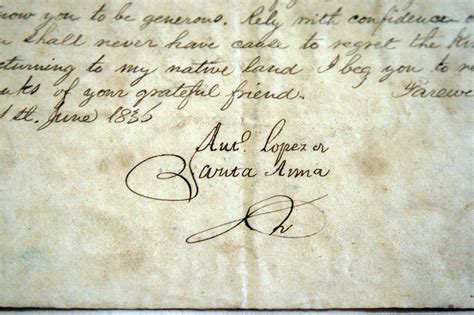 now you to be generous. Rely with confidence
shall never have cause to regret the
turning to my native land I beg you to
of your grateful friend. Farewe
st. June 1836
Anto. Lopez de
Santa Anna